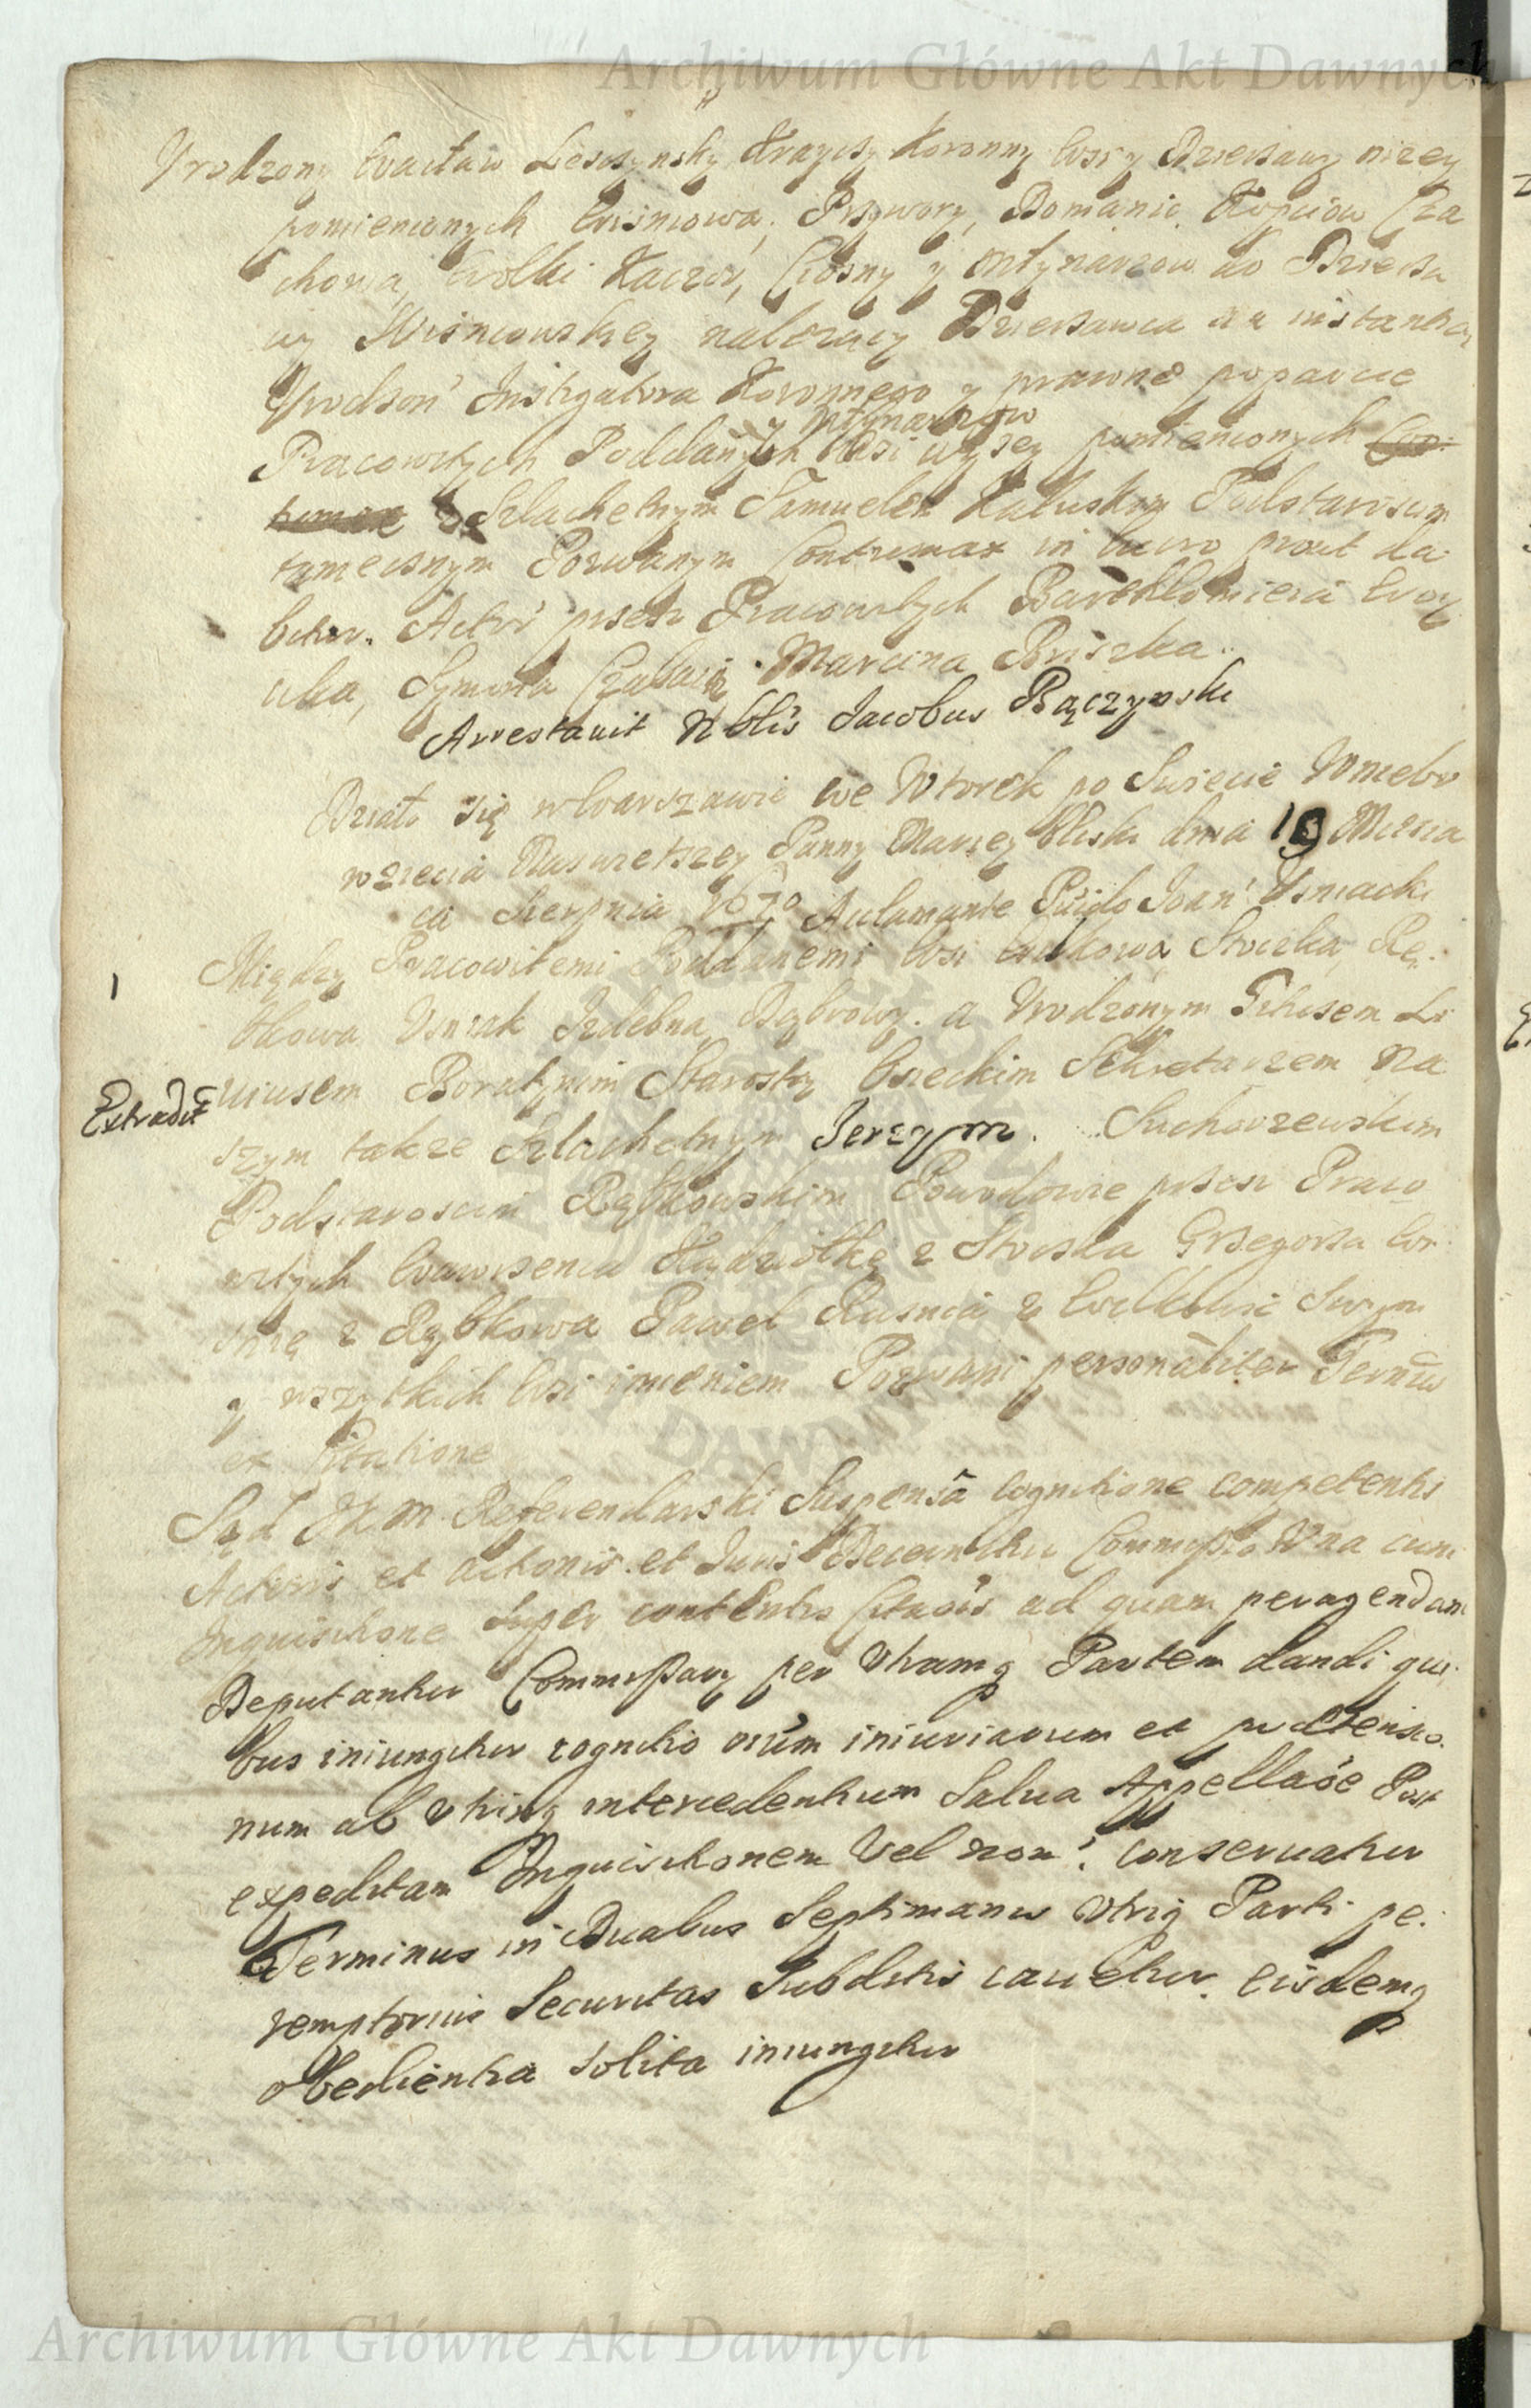 Archiwum Główne Akt Dawnych
Vrodzony Wacław Lesczynsky Krayczy Koronny Wsi y Dzierżawy nizey
pomienionych Wisniowa, Przywory, Domanic, Kopciow Cza
chowa, Wolki Kaczor, Ciosny y Młynarzow do Dzierża
wy Wisniowskiey nalezący Dzierżawca na instantią
Vrodzon' Instigatora Koronnego y prawne poparcie
y Młynarzow
Pracowitych Poddanych Wsi wyszey pomienionych
z Szlachetnym Samuelem Kaluskim Podstaroscim
tymecznym Pozwanym Contumax in lucro prout la
betur. Actor' przez Pracowitych Barthłomieia Woy
cika, Symona Marcina Briszka.
Arrestauit Nblis Jacobus Rączynski
Działo się w Warszawie we Wtorek po Swiecie Wniebo
wzięcia Naswietszey Panny Maryey blisko dnia 19 Miesią
ca Sierpnia 1670 Aclamante Pùido Joan' Vsniacki
1
Między Pracowitemi Poddanemi Wsi Wilkowa Stoczka, Rę.
bkowa Vsniak Izdebna Dąbrowy. a Vrodzonym Titusem Li
Extradit
uiusem Boratynim Starostą Osieckim Sekretarzem Na
szym takze Szlachetnym Jerzym. Suchorzewskim
Podstaroscim Rębkowskim Powodowie przez Praco
witych Wawrzenca Kądziołkę z Stoczka Grzegorza Wo
z Rębkowa Paweł Rusnia z Wilkowie swym
y wszytkich Wsi imieniem Pozwani personaliter Termin
ex Citatione
Sąd JKM. Referendarski Suspensa cognitione competentis
Actoris et actionis et Iuris Decernitur Commissio Vna cum
Inquisitione super contentis Citaois ad quam peragendam
Deputantur Commissarij per Vtramq Partem dandi qui
bus iniungitur cognitio oium iniuriarum et praetensio
num ab Vtrinq intercedentium Salua Appellaoe Post
expeditam Inquisitionem Vel non'. conseruatur
Terminus in Duabus Septimanis Vtriq Parti pe.
remptorius Securitas Subditis cauetur. eisdemq
obedientia solita iniungitur
Archiwum Główne Akt Dawnych